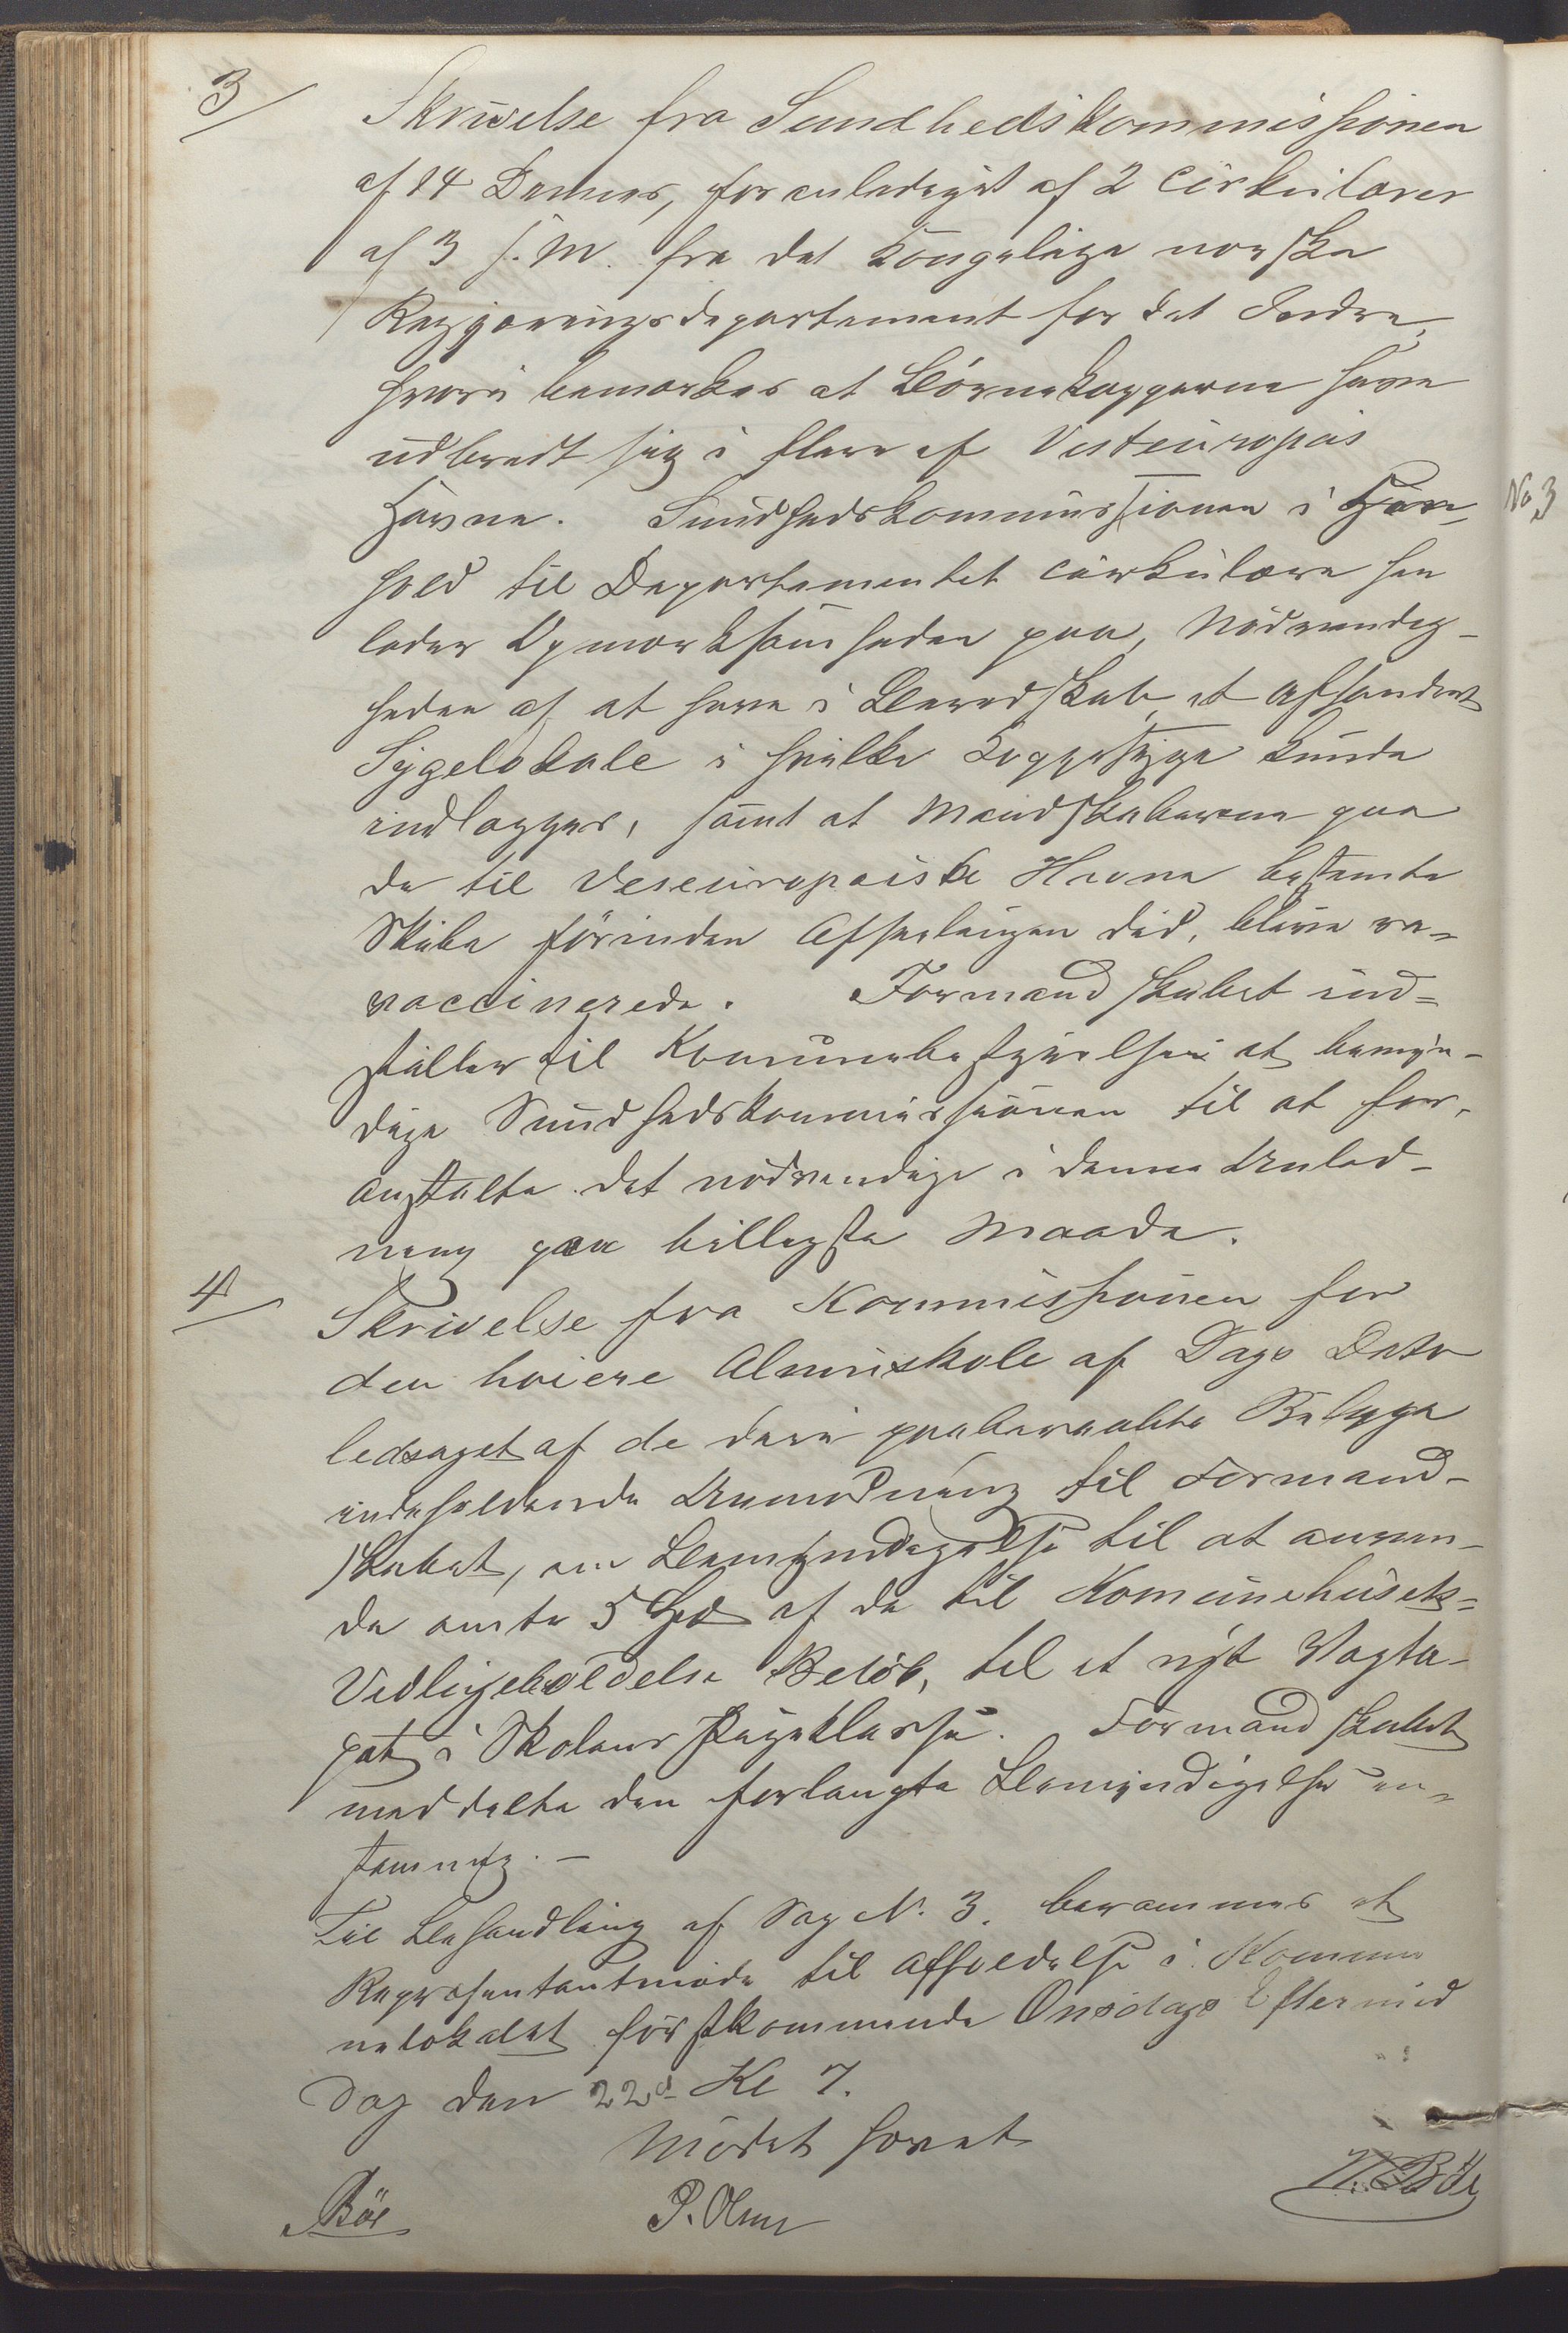 3/
Skrivelse fra Sundhedskommissionen
af 14 Dennes, foranlediget af 2 Cirkulærer
af 3 s. M. fra det kongelige norske
Regjeringsdepartement for det Indre,
hvori bemærkes at Børnekopperne have
udbredt sig i flere af Vesteuropas
Havne. Sundhedskommissionen i Hen-
No 3
hold til Departementet Cirkulære hen
leder Opmærksomheden paa, Nødvendig-
heden af at have i Beredskab et afsondret
Sygelokale i hvilke Koppesyge kunde
indlægges, samt at Mandskaberne paa
de til Veseuropaiske Havne bestemte
Skibe förinden Afseilingen did, blive re-
vaccinerede. Formandskabet ind-
stiller til Kommunebestyrelsen at bemyn-
dige Sundhedskommissionen til at for-
anstalte det nødvendige i denne Anled-
ning paa billigste Maade.
4/
Skrivelse fra Kommissionen for
den høiere Almuskole af Dags Dato
ledsaget af de deri paaberaabte Bilage
indeholdende Anmodning til Formand-
skabet, om Bemyndigelse til at anven-
de omtr 5 Spd af de til Komunehusets-
Vedligeholdelse Beløb, til et nyt Vægta-
pet i Skolens Pigeklasse. Formandskabet
meddelte den forlangte Bemyndigelse en-
stemmig. -
Til Behandling af Sag N. 3. berammes et
Repræsentantmøde til Afholdelse i Kommu
nelokalet førstkommende Onsdags Eftermid
dag den 22de Kl 7.
Mødet hævet
Böe
P. Olsen